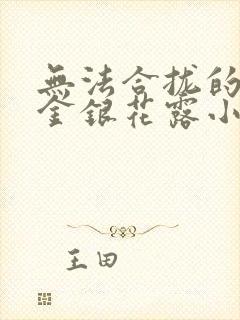 無法合拢的
金銀花露小
王田